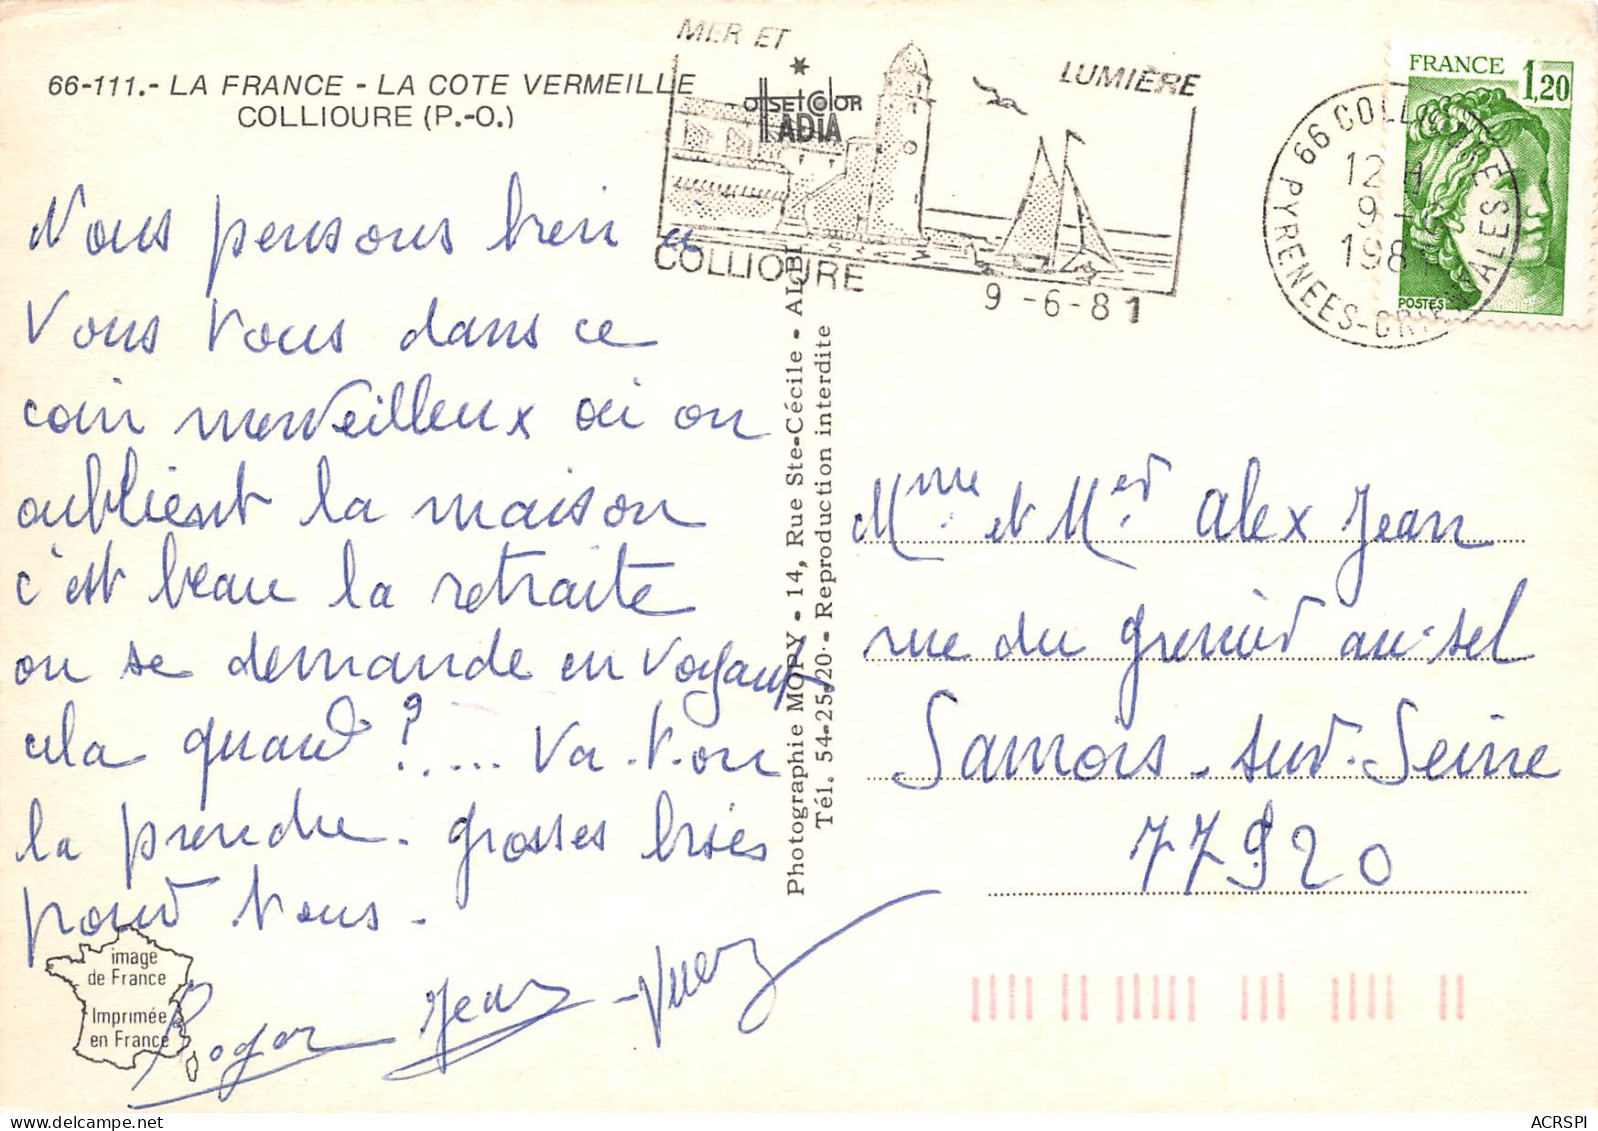 66-111.- LA FRANCE - LA COTE VERMEILLE
COLLIOURE (P.-O.)
MER ET
LUMIÈRE
OffsetColor
LADIA
COLLIOURE
9 -6-81
66 COLLIOURE
12 H
9 - 6
1981
PYRENEES-ORIENTALES
FRANCE 1,20
POSTES
Nous pensons bien à
Vous Tous dans ce
coin merveilleux où on
oublient la maison
c'est beau la retraite
on se demande en voyant
cela quand ?..... Va-t-on
la prendre. grosses bises
pour Tous.
Roger Jean
Photographie MOPY - 14, Rue Ste-Cécile - ALBI
Tél. 54-25.20 - Reproduction interdite
Mme et Mr Alex Jean
rue du grenier au sel
Samois-sur-Seine
77920
image
de France
Imprimée
en France
ACRSPI